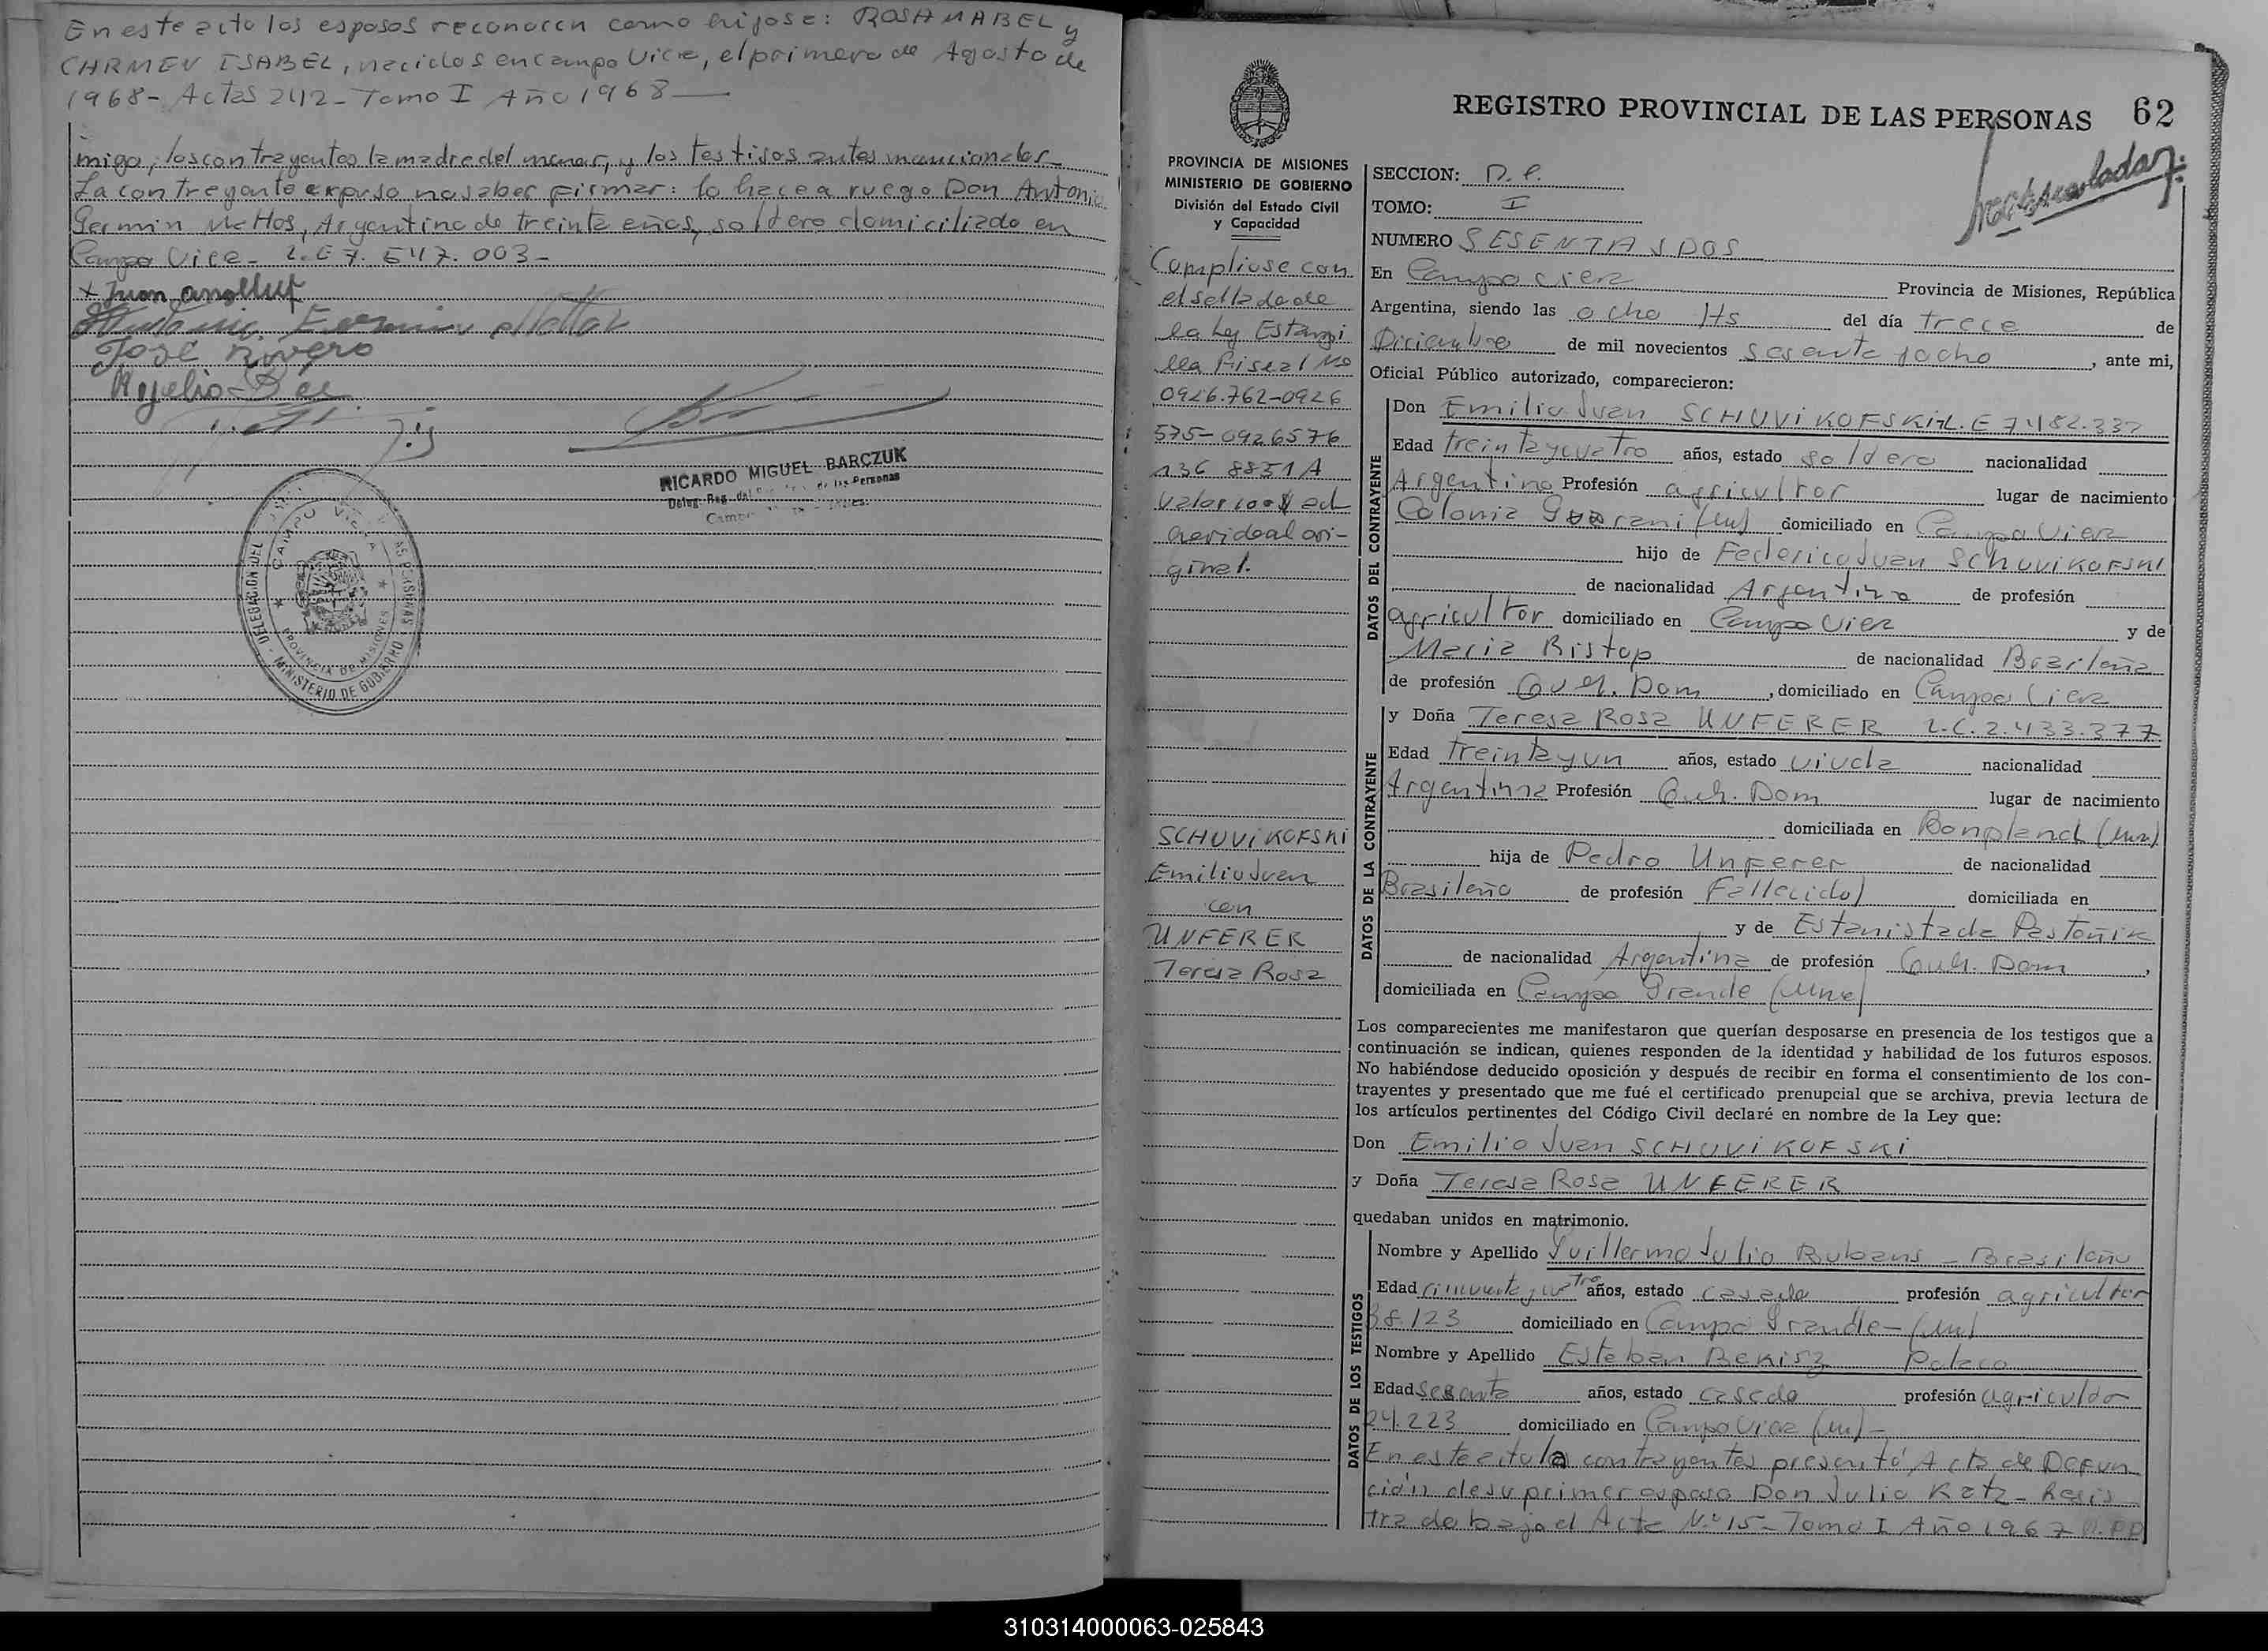 En este acto los esposos reconocen como hijos e: ROSA MABEL y
CARMEN ISABEL, necidos en campo Viere, el primero de Agosto de
1968- Actas 2412- Tomo I Año 1968
migo, los contrayentes la madre del menor, y los testigos antes mencionados
La contrayente expuso no saber firmar: lo hace a ruego Don Antonio
Germin Mattos, Argentino de treinta eños, soltero domiciliado en
Campo Viere- L.E 7.547.003-
+ Juan
José Rivero
Rogelio
RICARDO MIGUEL BARCZUK
Deleg. Reg. de las Personas
DELEGACION DEL
AS PERSONAS
MINISTERIO DE GOBIERNO
CAMPO VIERA
PROVINCIA DE MISIONES
REGISTRO PROVINCIAL DE LAS PERSONAS 62
PROVINCIA DE MISIONES
MINISTERIO DE GOBIERNO
División del Estado Civil
y Capacidad
SECCION: D.P.
TOMO: I
NUMERO SESENTA Y DOS
En Campo Viera Provincia de Misiones, República
Argentina, siendo las ocho Hs del día trece de
Diciembre de mil novecientos sesenta y ocho, ante mi,
Oficial Público autorizado, comparecieron:
Cumpliose con
el sellado de
la ley Estampi
lla Fiscal No
0926.762-0926
575-0926576
136 8851A
valor 100$ ad
original.
DATOS DEL CONTRAYENTE
Don Emilio Juan SCHUVIKOFSKI L.E 7.482.332
Edad treinta y cuatro años, estado soltero nacionalidad
Argentino Profesión agricultor lugar de nacimiento
Colonia Guarani (Mns) domiciliado en Campo Viera
hijo de Federico Juan Schuvikofski
de nacionalidad Argentino de profesión
agricultor domiciliado en Campo Viera y de
Maria Ristop de nacionalidad Brasileña
de profesión Queh. Dom, domiciliado en Campo Viera
DATOS DE LA CONTRAYENTE
y Doña Teresa Rosa UNFERER L.C. 2.433.377
Edad treinta y un años, estado viuda nacionalidad
Argentina Profesión Queh. Dom lugar de nacimiento
domiciliada en Bonpland (Mns)
hija de Pedro Unferer de nacionalidad
Brasileño de profesión Fallecido) domiciliada en
y de Estanislada Pastoñik
de nacionalidad Argentina de profesión Queh. Dom,
domiciliada en Campo Grande (Mns)
Los comparecientes me manifestaron que querían desposarse en presencia de los testigos que a
continuación se indican, quienes responden de la identidad y habilidad de los futuros esposos.
No habiéndose deducido oposición y después de recibir en forma el consentimiento de los con-
trayentes y presentado que me fué el certificado prenupcial que se archiva, previa lectura de
los artículos pertinentes del Código Civil declaré en nombre de la Ley que:
SCHUVIKOFSKI
Emilio Juan
con
UNFERER
Teresa Rosa
Don Emilio Juan SCHUVIKOFSKI
y Doña Teresa Rosa UNFERER
quedaban unidos en matrimonio.
DATOS DE LOS TESTIGOS
Nombre y Apellido Guillermo Julio Rubans - Brasileño
Edad cincuenta y cuatro años, estado casado profesión agricultor
38.123 domiciliado en Campo Grande- (Mns)
Nombre y Apellido Esteban Bekisz Polaco
Edad Sesenta años, estado casado profesión agricultor
24.223 domiciliado en Campo Viera (Mns)-
En este acto la contrayentes presentó Acta de Defun
ción de su primer esposo Don Julio Katz- Regis
trada bajo el Acta N.º 15- Tomo I Año 1967
310314000063-025843